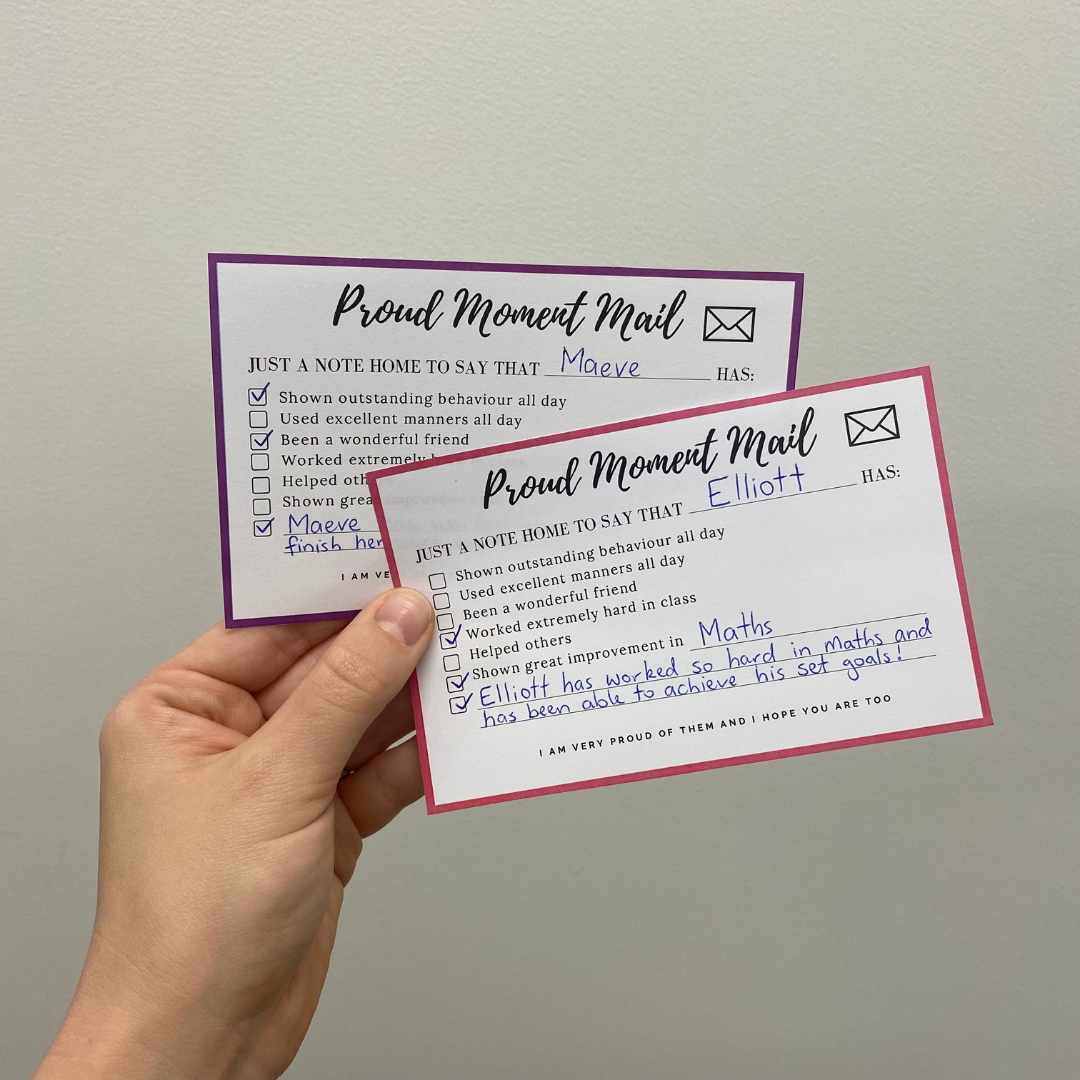 Proud Moment Mail
JUST A NOTE HOME TO SAY THAT Maeve HAS:
Shown outstanding behaviour all day
Used excellent manners all day
Been a wonderful friend
Worked extremely
Helped
Shown
Maeve
finish
I AM
Proud Moment Mail
JUST A NOTE HOME TO SAY THAT Elliott HAS:
Shown outstanding behaviour all day
Used excellent manners all day
Been a wonderful friend
Worked extremely hard in class
Helped others
Shown great improvement in Maths
Elliott has worked so hard in maths and
has been able to achieve his set goals!
I AM VERY PROUD OF THEM AND I HOPE YOU ARE TOO